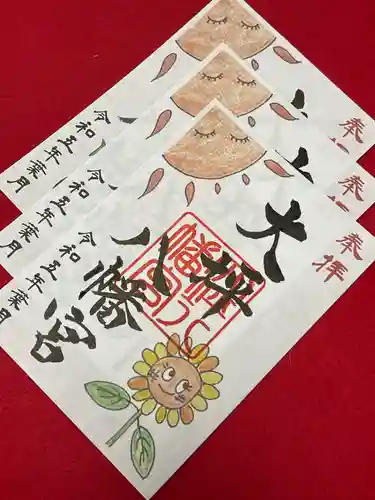 奉拝
大坪
八幡宮
令和五年葉月
奉拝
令和五年葉月
奉拝
令和五年葉月